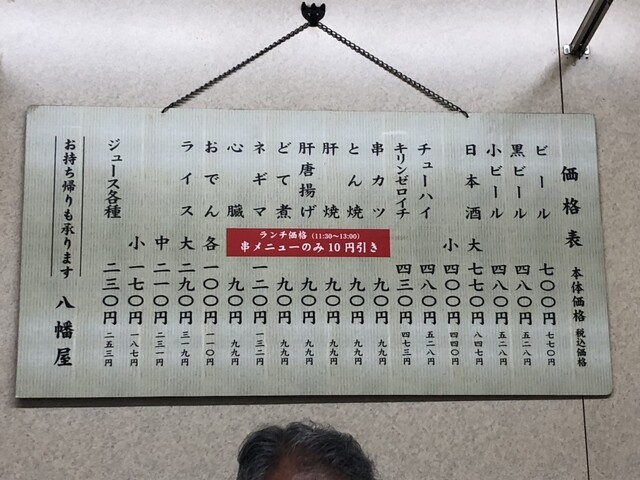 価格表 本体価格 税込価格
ビール 七〇〇円 七七〇円
黒ビール 四八〇円 五二八円
小ビール 四八〇円 五二八円
日本酒 大 七七〇円 八四七円
小 四〇〇円 四四〇円
チューハイ 四八〇円 五二八円
キリンゼロイチ 四三〇円 四七三円
串カツ 九〇円 九九円
とん焼 九〇円 九九円
肝焼 九〇円 九九円
肝唐揚げ 九〇円 九九円
どて煮 九〇円 九九円
ネギマ 一二〇円 一三二円
心臓 九〇円 九九円
おでん 各 一〇〇円 一一〇円
ライス 大 二九〇円 三一九円
中 二一〇円 二三一円
小 一七〇円 一八七円
ジュース各種 二三〇円 二五三円
お持ち帰りも承ります 八幡屋
ランチ価格(11:30~13:00)
串メニューのみ10円引き